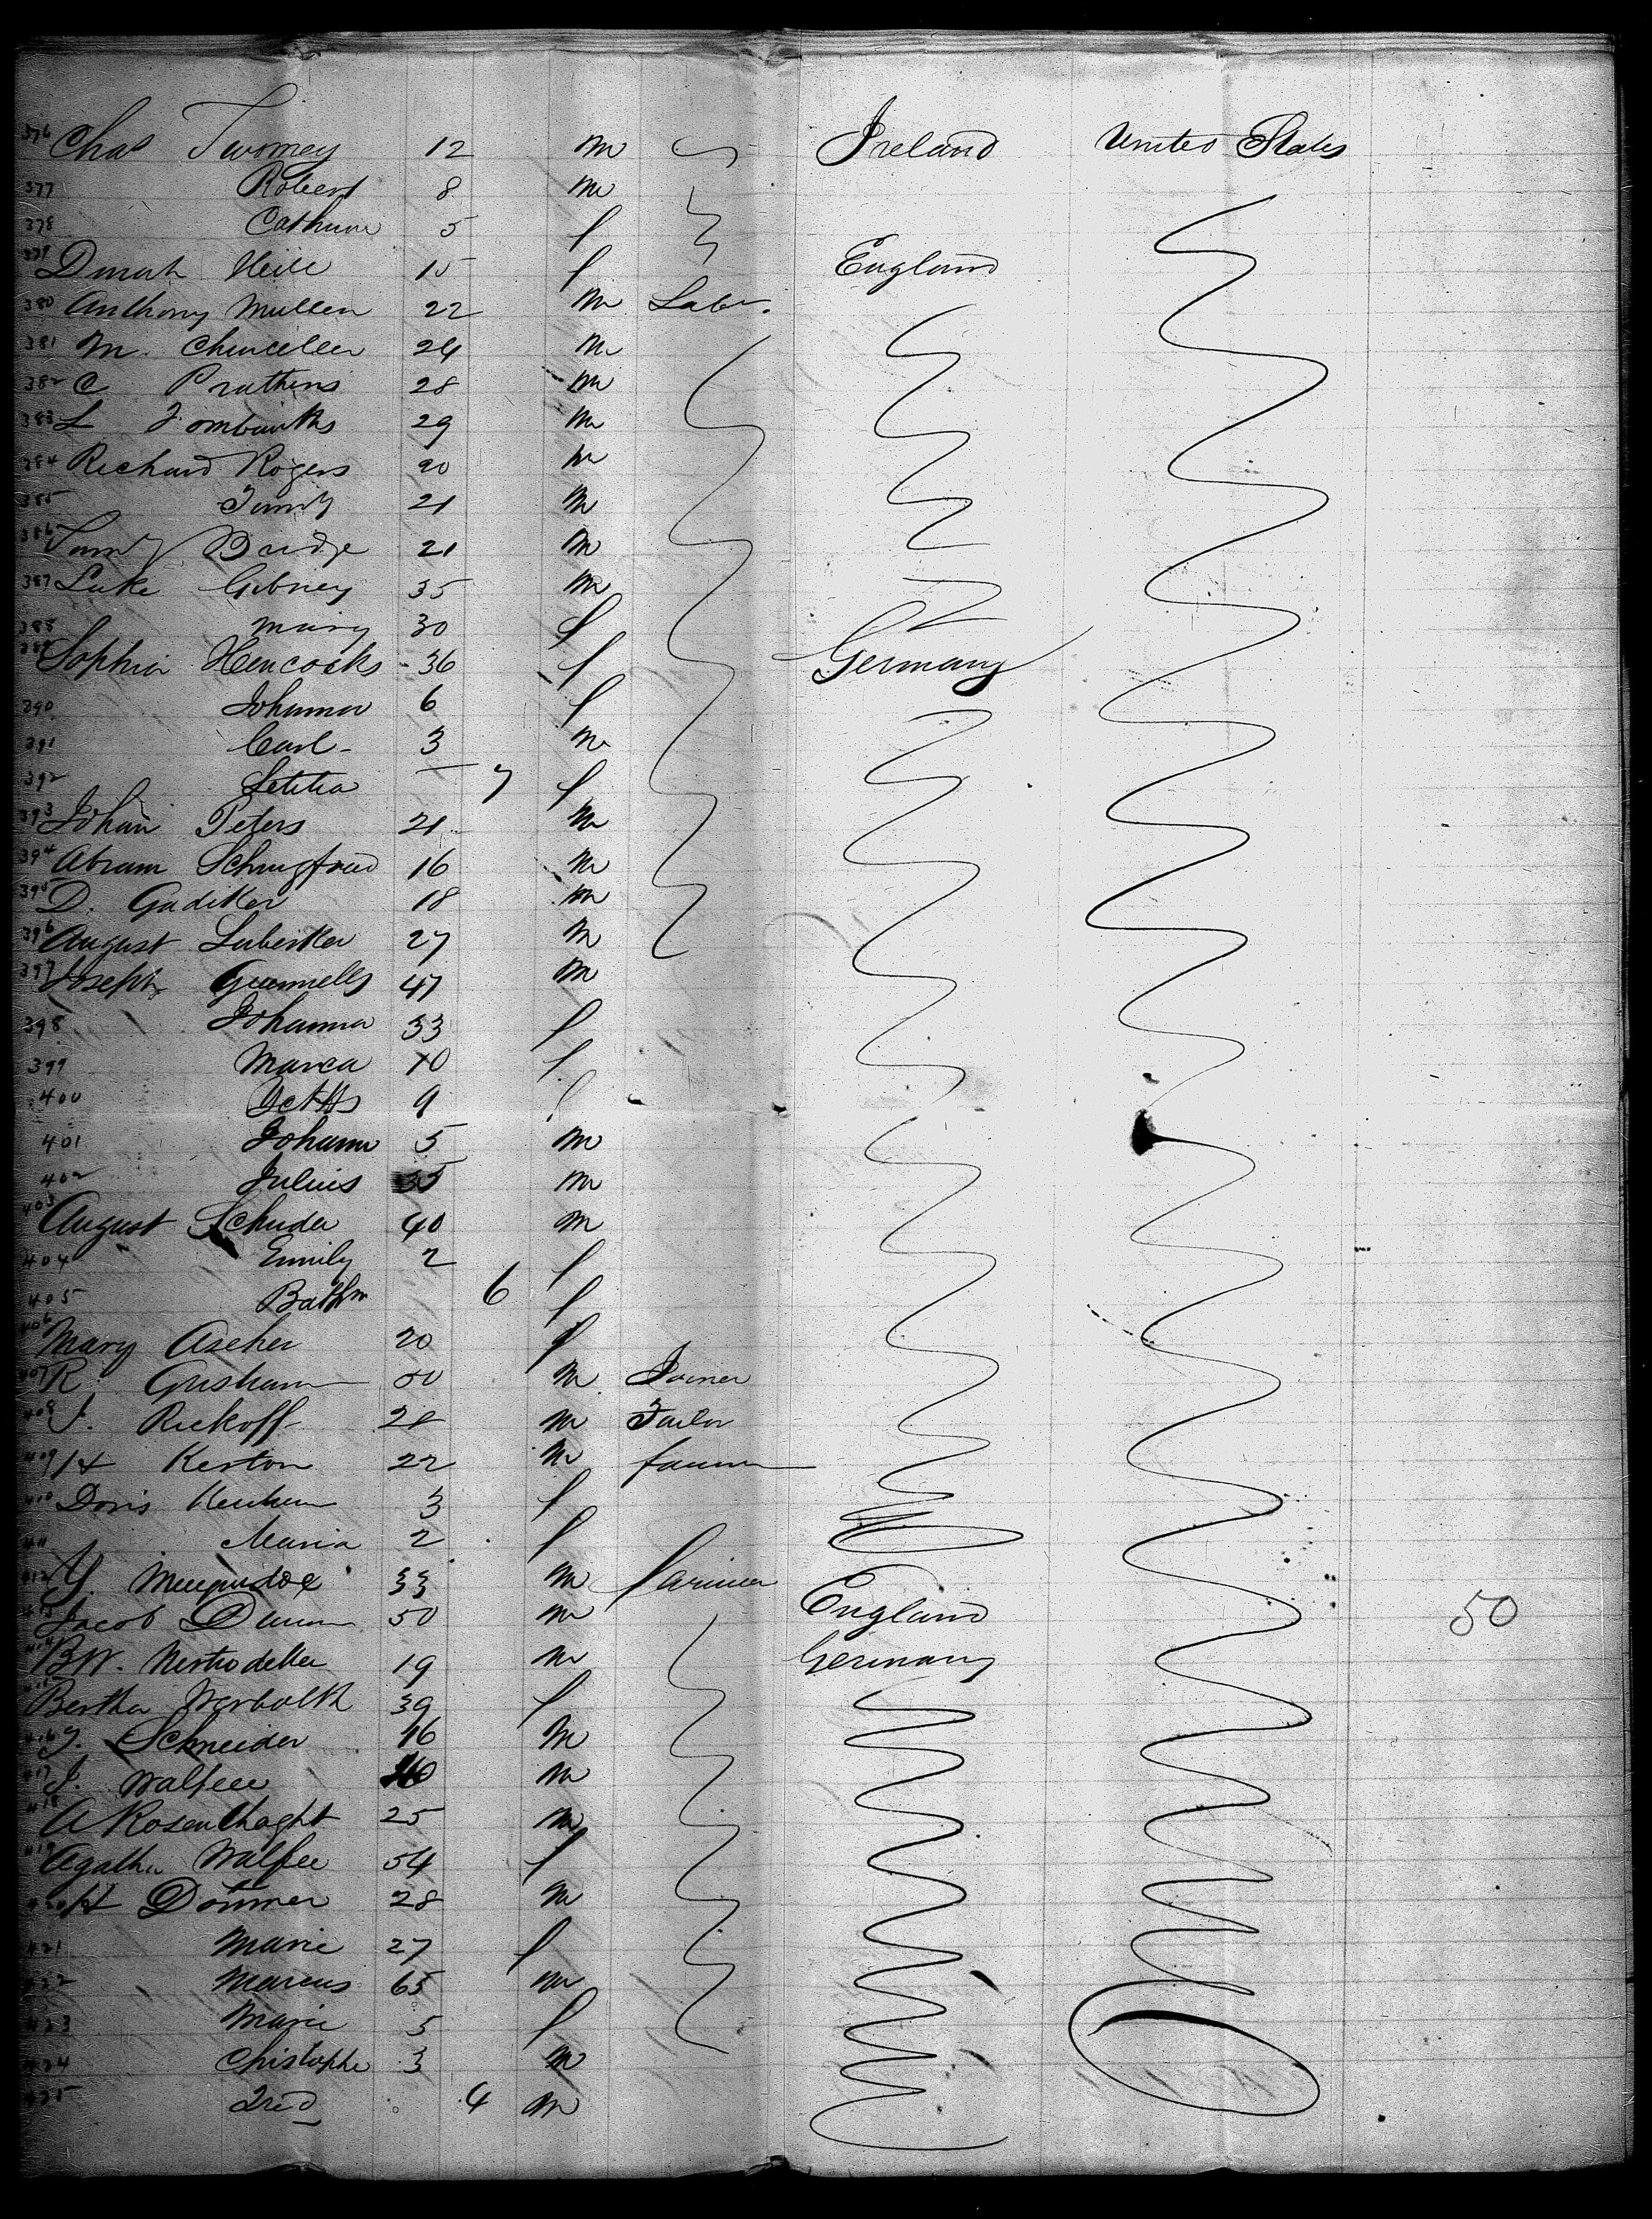 376 Chas Twomey 12 m Ireland United States
377 Robert 8 m
378 Catherine 5 f
379 Dinah 15 f England
380 Anthony Mullen 22 m Labr.
381 M. 24 m
382 C 28 m
383 L 29 m
384 Richard Rogers 20 m
385 21 m
386 Bridge 21 m
387 Luke Gibney 35 m
388 Mary 30 f
389 Sophia Hencocks 36 f Germany
390 Johanna 6 f
391 Carl 3 m
392 Letitia — 7 f
393 Johan Peters 21 m
394 Abram 16 m
395 D. Gadiker 18 m
396 August Lubesker 27 m
397 Joseph Gummells 47 m
398 Johanna 33 f
399 Maria 10 f
400 9 f
401 Johann 5 m
402 Julius m
403 August Schuder 40 m
404 Emily 2 f
405 6 f
406 Mary Ascher 20 f
407 R. Grisham 50 m Joiner
408 J. Rickoff 28 m Tailor
409 H Kerton 22 m farmer
410 Doris 3 f
411 Maria 2 f
412 Y. 33 m farmer England
413 Jacob Dunn 50 m 50
414 BW. 19 m Germany
415 Bertha 39 f
416 J. Schneider 16 m
417 J. Walfee m
418 A Rosenthaght 25 m
419 Agatha Walfee 54 f
420 H Dommer 28 m
421 Marie 27 f
422 Marcus 65 m
423 Marie 5 f
424 Christophe 3 m
425 Fred 4 m